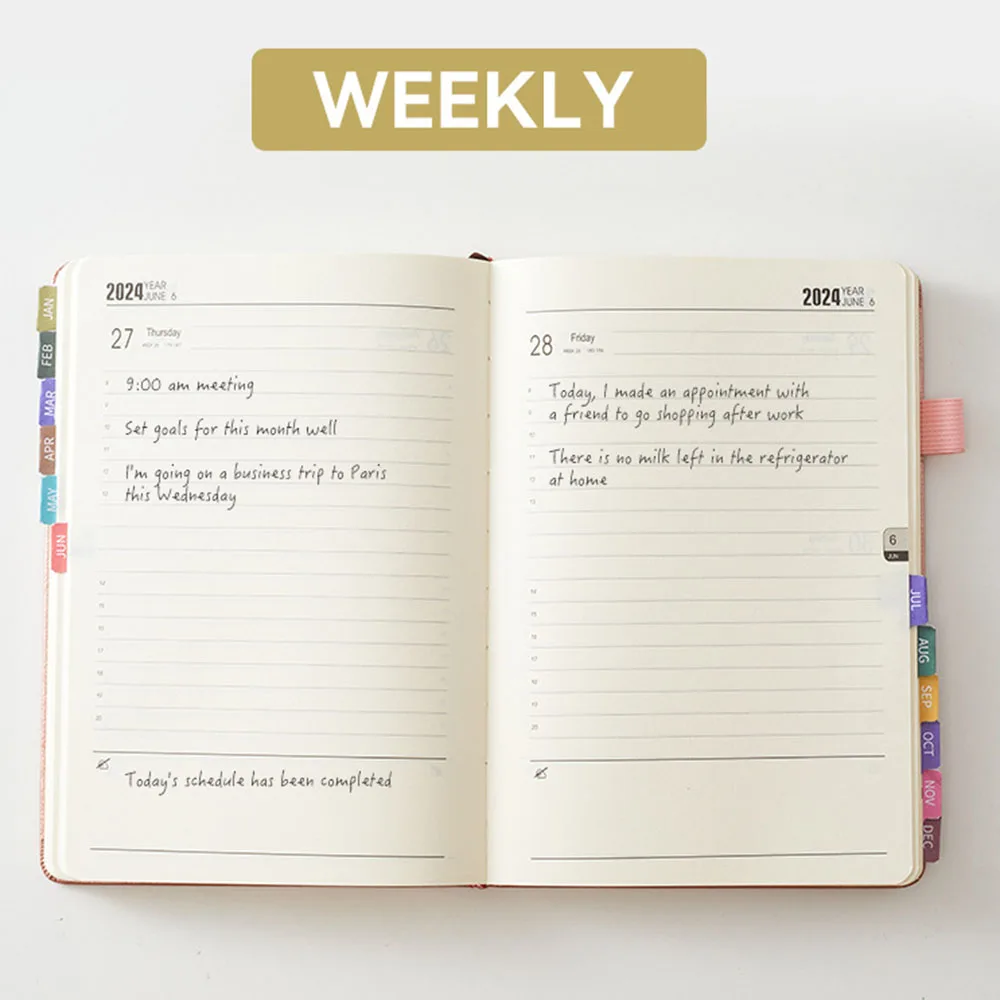 WEEKLY
2024 YEAR
JUNE 6
27 Thursday
9:00 am meeting
Set goals for this month well
I'm going on a business trip to Paris
this Wednesday
14
15
16
17
18
19
20
Today's schedule has been completed
2024 YEAR
JUNE 6
28 Friday
Today, I made an appointment with
a friend to go shopping after work
There is no milk left in the refrigerator
at home
14
15
16
17
18
19
20
JAN
FEB
MAR
APR
MAY
JUN
6
JUN
JUL
AUG
SEP
OCT
NOV
DEC